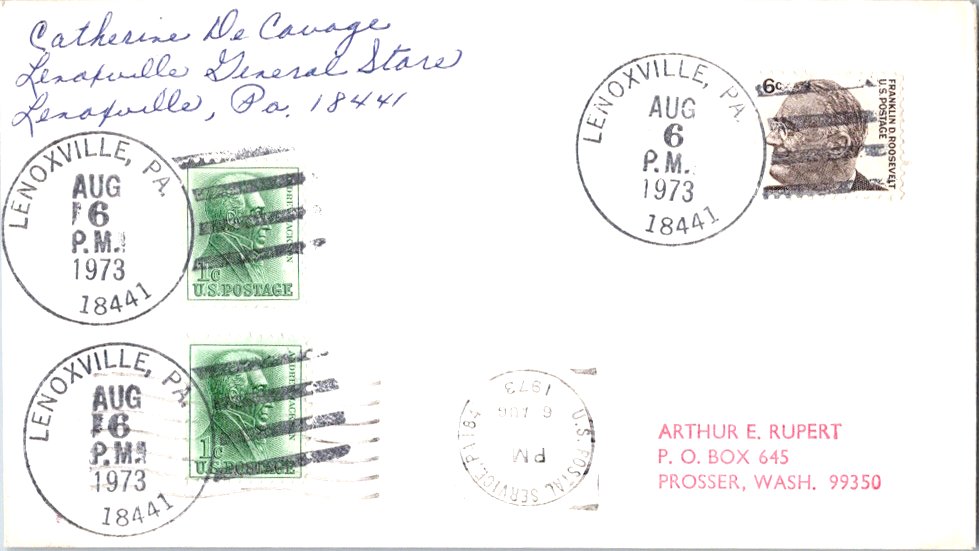 Catherine De Cavage
Lenoxville General Store
Lenoxville, Pa. 18441
LENOXVILLE, PA.
AUG
6
P.M.
1973
18441
6c
FRANKLIN D. ROOSEVELT
U.S. POSTAGE
LENOXVILLE, PA.
AUG
6
P.M.
1973
18441
1c
U.S. POSTAGE
LENOXVILLE, PA.
AUG
6
P.M.
1973
18441
1c
U.S. POSTAGE
U.S. POSTAL SERVICE, PA
PM
6 AUG
1973
ARTHUR E. RUPERT
P. O. BOX 645
PROSSER, WASH. 99350